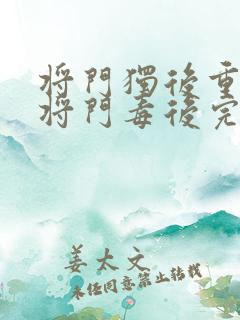 将門獨後重
将門毒後完
姜太文
未经同意禁止转载